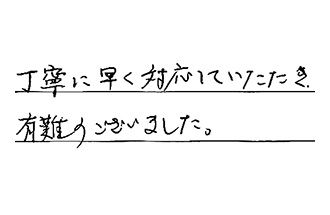 丁寧に早く対応していただき、
有難うございました。